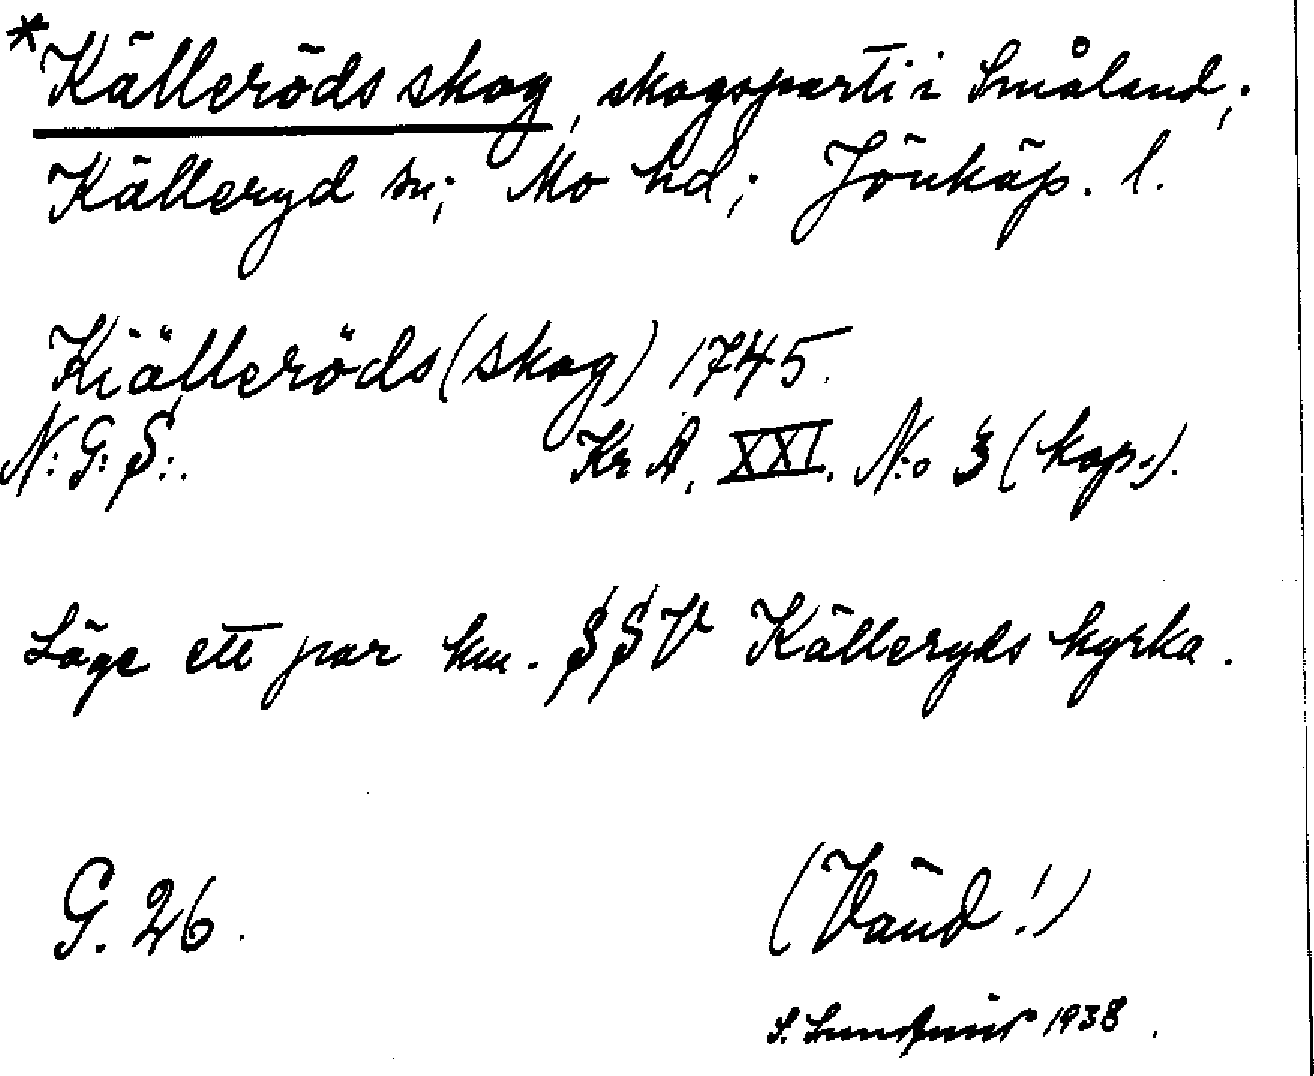 *Källeröds skog, skogsparti i Småland;
Källeryd sn; Mo hd; Jönköp. l.
Kiälleröds (skog) 1745.
N: G: S:. Kr A. XXI. N:o 3 (kop.).
Läge ett par km. SSV Källeryds kyrka.
G. 26.
(Vänd!)
S. 1938.